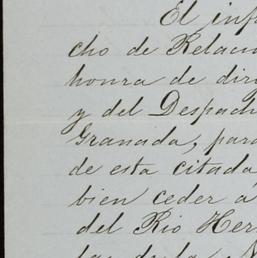 El inf
cho de Relacio
honra de diri
y del Despach
Granada, para
de esta citada
bien ceder á
del Rio Her
las de la N